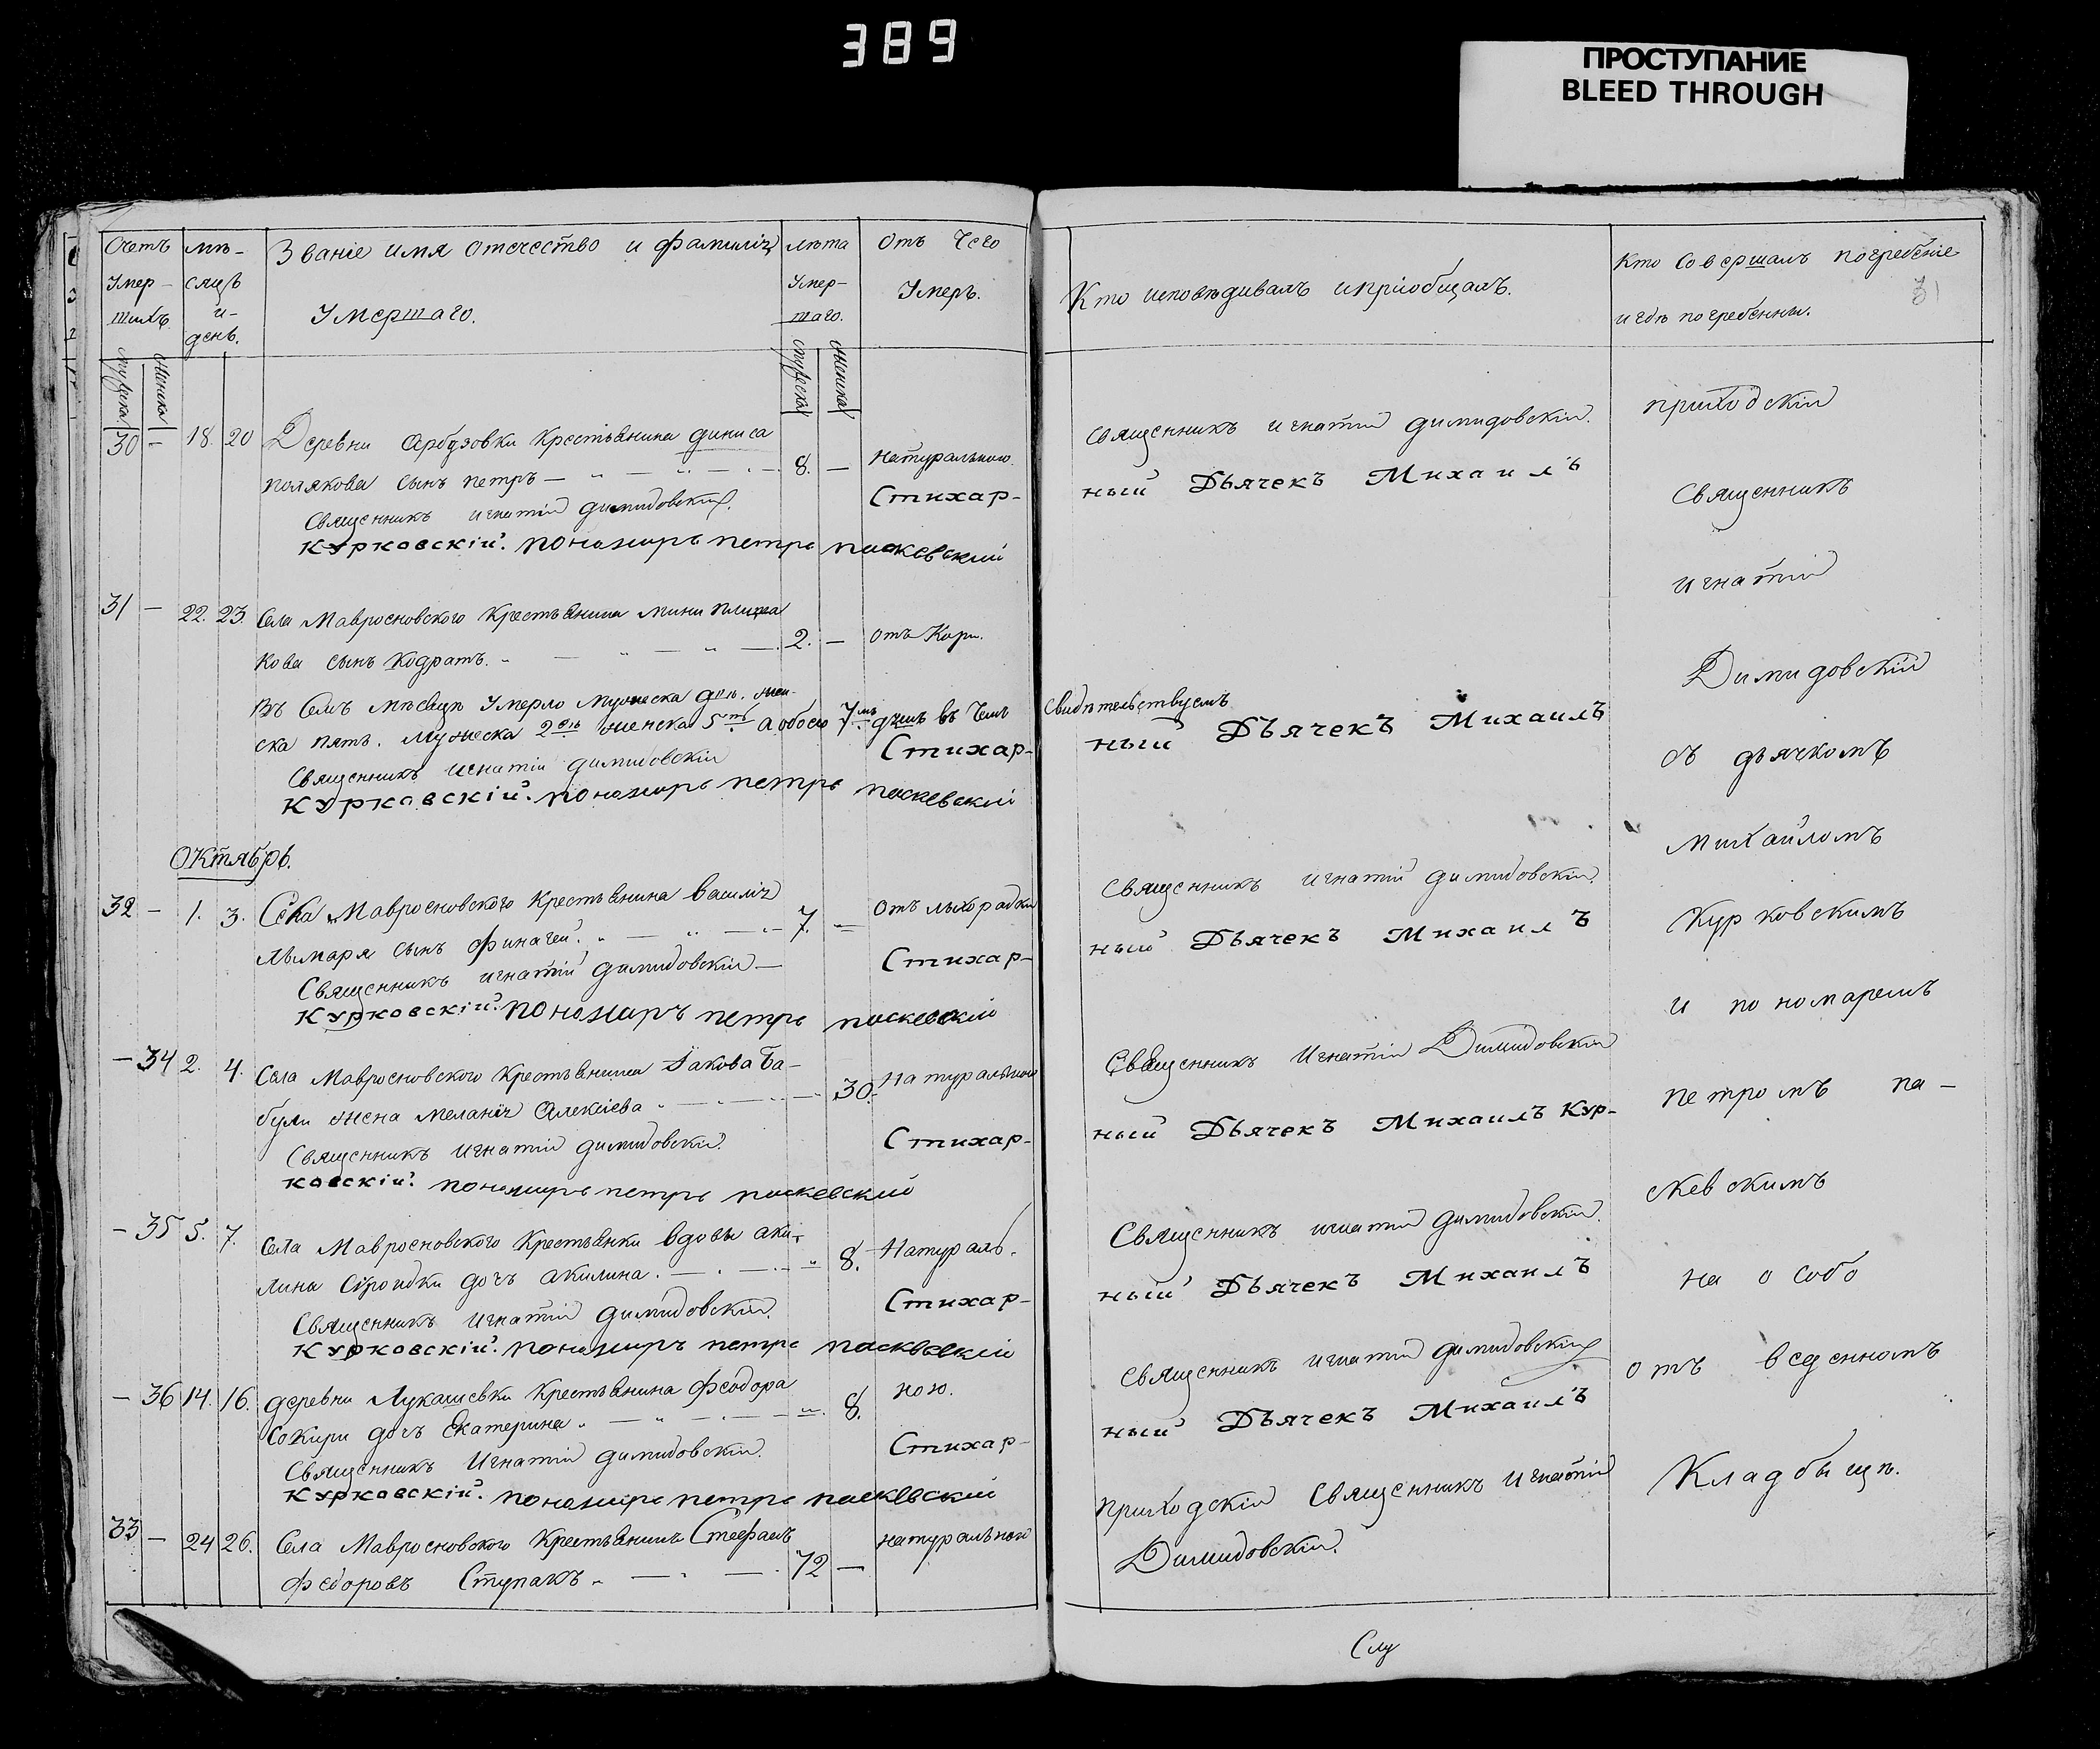 389
ПРОСТУПАНИЕ
BLEED THROUGH
Счетъ Умер- шихъ
мѣ- сяцъ и- день.
Званіе имя отечество и фамилія Умершаго.
лѣта Умер- шаго.
Отъ Чего Умеръ.
Кто исповѣдивалъ и пріобщалъ.
Кто совершалъ погребеніе
и гдѣ погребенны.
31
мужеска женска
мужеска женска
30 — 18. 20 Деревни Арбузовки Крестьянина диниса
полякова сынъ петръ — 8. — натуральною
Священникъ игнатій димидовскій. Стихар-
Курковскій. пономарь петръ паскевский
Священникъ игнатій димидовскій.
ный Дьячекъ Михаилъ
31 — 22. 23. Села Мавросновского Крестьянина мини
кова сынъ Кодратъ. 2. — отъ Кори.
Въ Семъ мѣсяцѣ Умерло Мужеска два. жен-
ска пять. Мужеска 2 женска 5 а обоего 7 душъ въ Чемъ
Священникъ игнатій димидовскій Стихар-
Курковскій. пономарь петръ паскевский
свидѣтельствуемъ
ный Дьячекъ Михаилъ
Октябрь.
32 — 1. 3. Села Мавросновского Крестьянина Василія
Лымаря сынъ Финагей. 7. — Отъ лыхорадки
Священникъ игнатій димидовскій — Стихар-
Курковскій. пономаръ петръ паскевский
Священникъ игнатій димидовскій.
ный Дьячекъ Михаилъ
— 34 2. 4. Села Мавросновского Крестьянина Iакова Ба-
були жена Меланія Алексіева 30. Натуральною
Священникъ игнатій димидовскій. Стихар-
ковскій. пономарь петръ паскевский
Священникъ Игнатій Димидовскій
ный Дьячекъ Михаилъ Кур-
— 35 5. 7. Села Мавросновского Крестьянки вдовы аки-
лина дочъ акилина. 8. Натураль.
Священникъ игнатій димидовскій. Стихар-
Курковскій. пономаръ петръ паскевский
Священникъ игнатій димидовскій.
ный Дьячекъ Михаилъ
— 36 14. 16. деревни Лукашевки Крестьянина Феодора
Сокири дочъ Екатерина 8. ною.
Священникъ Игнатій димидовскій. Стихар-
Курковскій. пономарь петръ паскевский
Священникъ игнатій димидовскій
ный Дьячекъ Михаилъ
33 — 24 26. Села Мавросновского Крестьянинъ Стефанъ
Федоровъ Ступакъ 72 — натуральной
приходскій Священникъ Игнатій
Димидовскій.
приходскій
Священникъ
игнатій
Димидовскій
съ дьячкомъ
михайломъ
Курковскимъ
и пономаремъ
петромъ па-
скевскимъ
на особо
отъ веденномъ
Кладбищѣ.
Слу